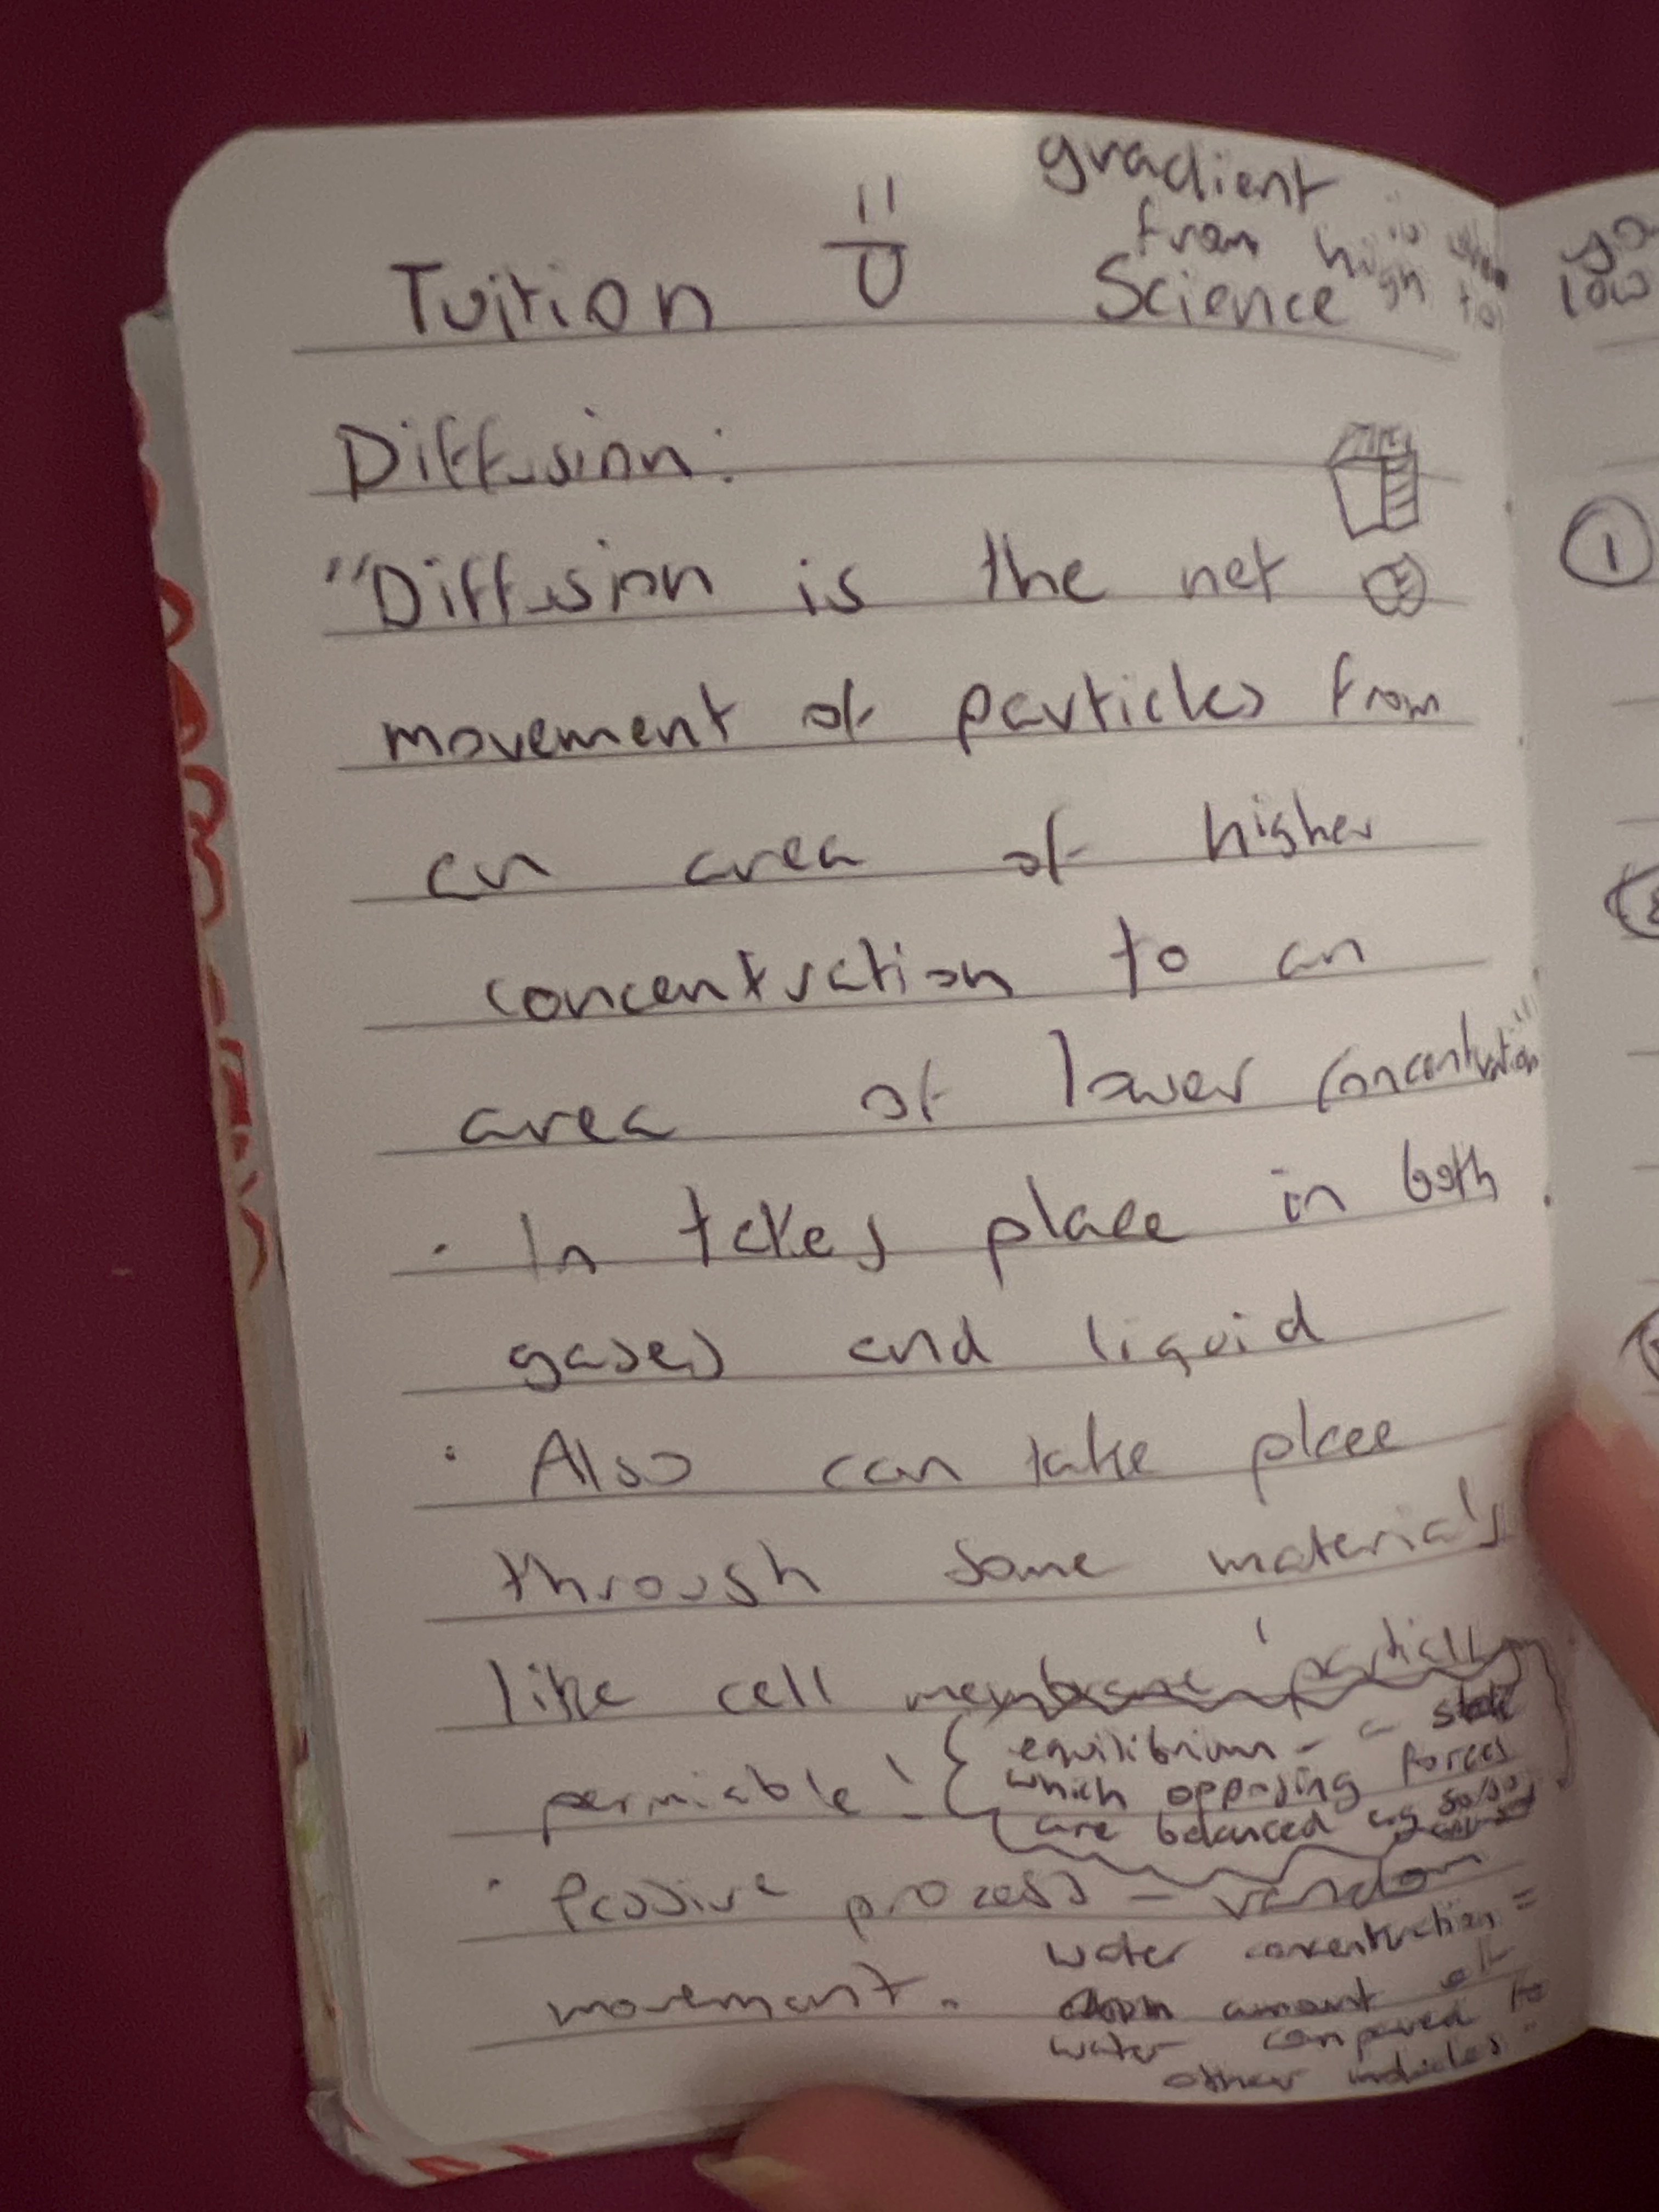 gradient
is when
from high to
Tuition
Science
Diffusion:
"Diffusion is the net
movement of particles from
an area of higher
concentration to an
area of lower concentration"
· In takes place in both
gases and liquid
· Also can take place
through some materials
like cell membrane
permiable!
equilibrium - a
which opposing forces
are balanced eg
· Passive process - random
movement.
water concentration =
amount of
water compared to
other
low
1